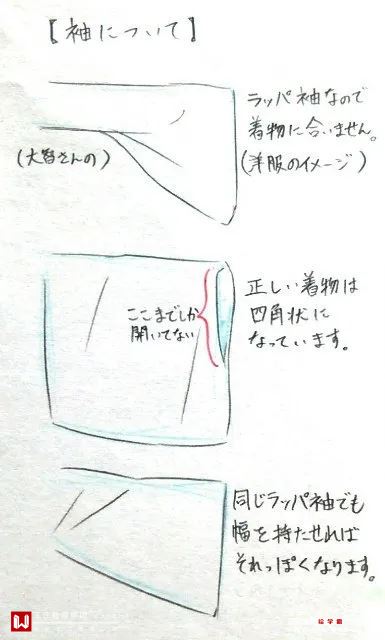 【袖について】
ラッパ袖なので
着物に合いません。
(大智さんの)
(洋服のイメージ)
ここまでしか
開いてない
正しい着物は
四角状に
なっています。
同じラッパ袖でも
幅を持たせれば
それっぽくなります。
絵学園